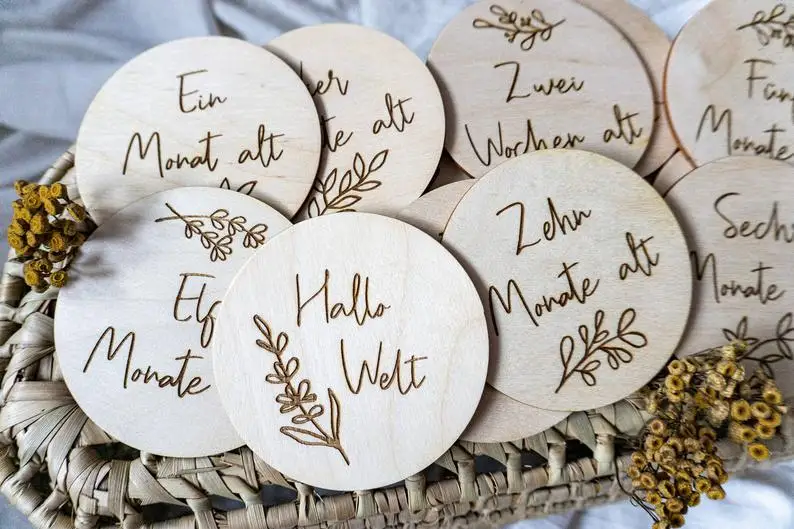 Ein
Monat alt
alt
Zwei
Wochen alt
Monate
Elf
Monate
Hallo
Welt
Zehn
Monate alt
Monate